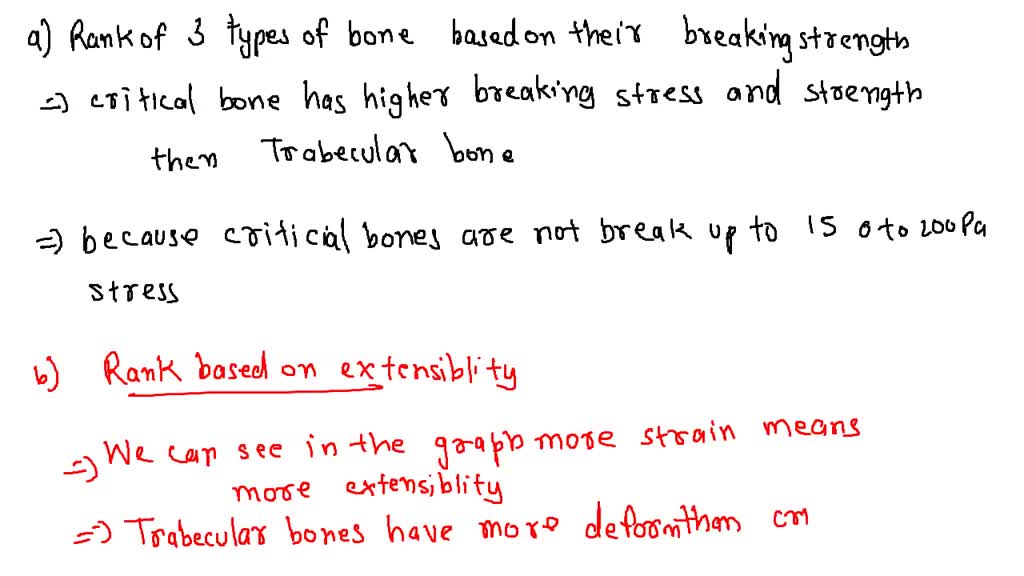 a) Rank of 3 types of bone based on their breaking strength
=> critical bone has higher breaking stress and stoength
then Trabecular bone
=> because criticial bones are not break up to 15 0 to 200 Pa
stress
b) Rank based on extensiblity
=> We can see in the graph more strain means
more extensiblity
=> Trabecular bones have more deform than cr